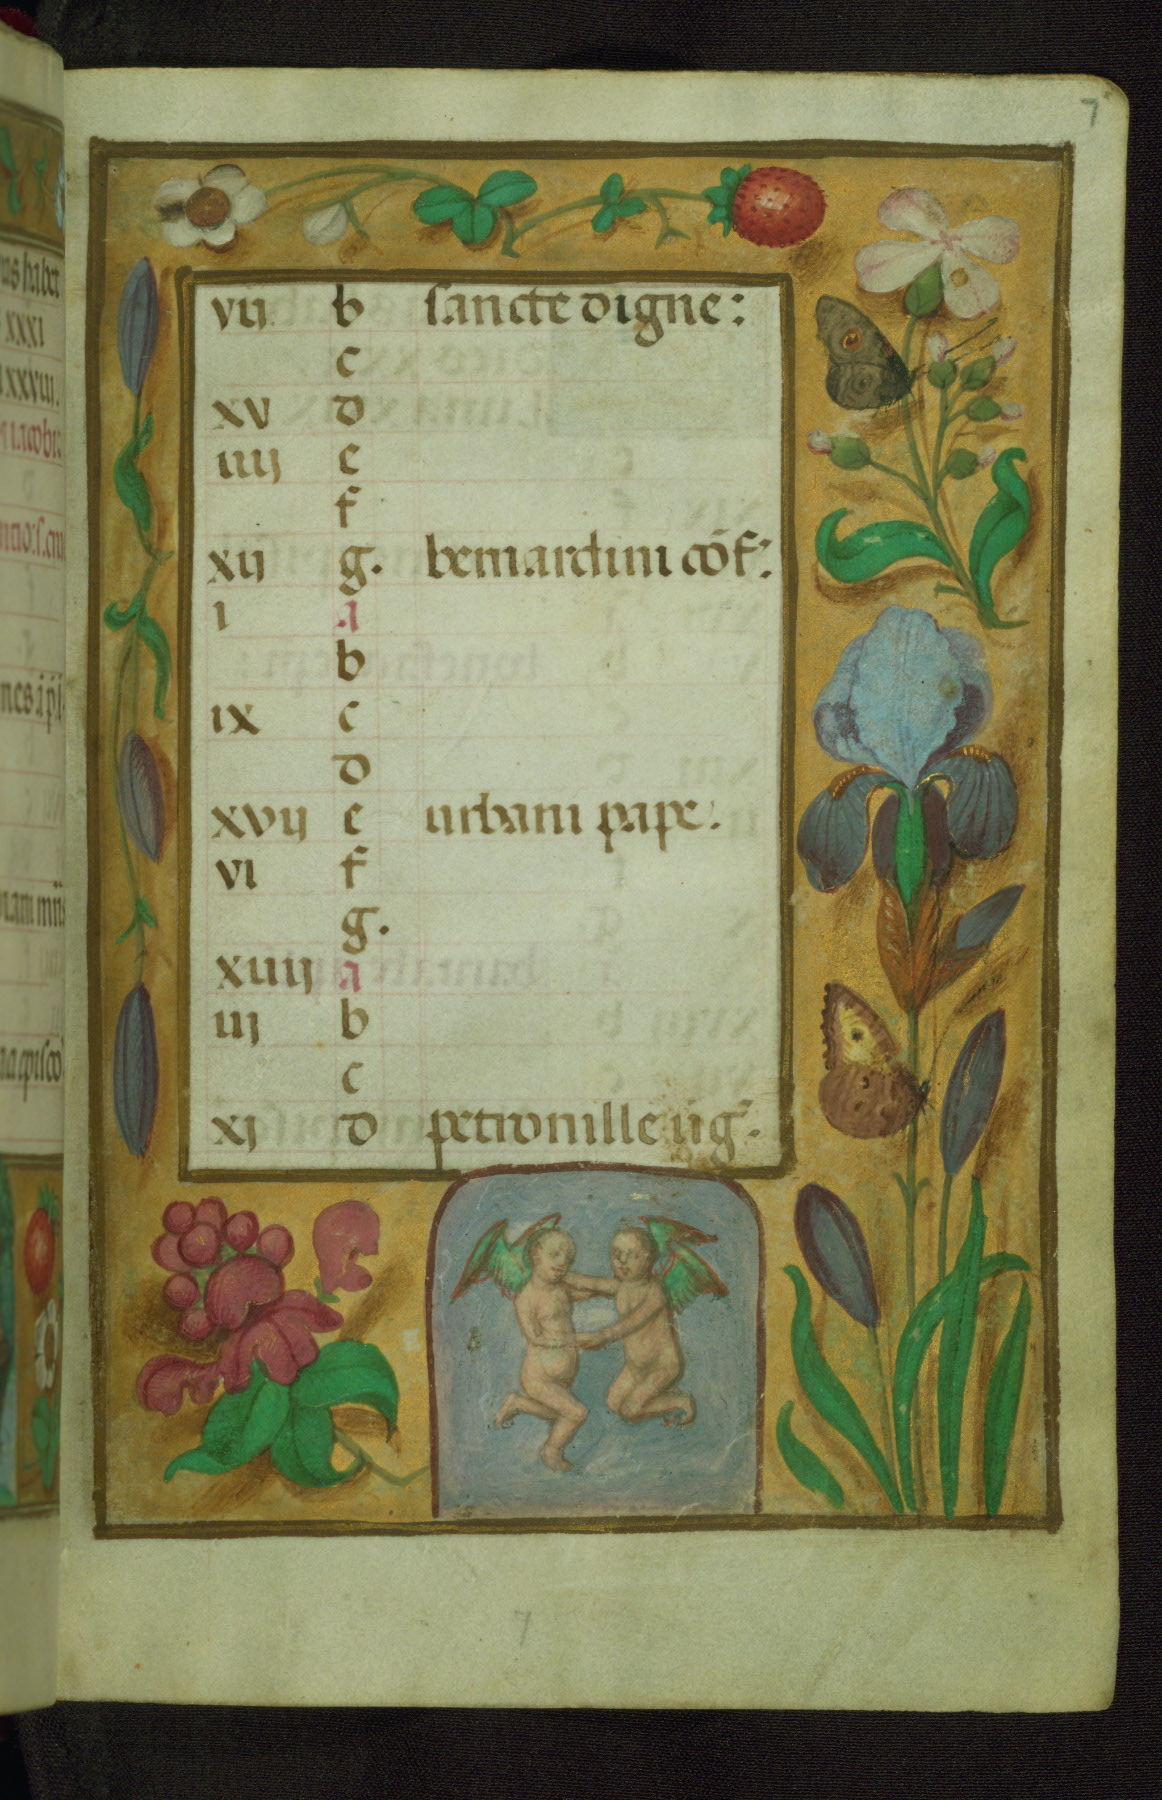 7
ons habet
xxxi
xxviii.
vii b sancte digne:
c
xv d
iiij e
f
xij g. bernardini cōf:
i a
b
ix c
d
xvij e urbani pape:
vi f
g.
xiiij a
iij b
c
xj d petronille ūg.
7